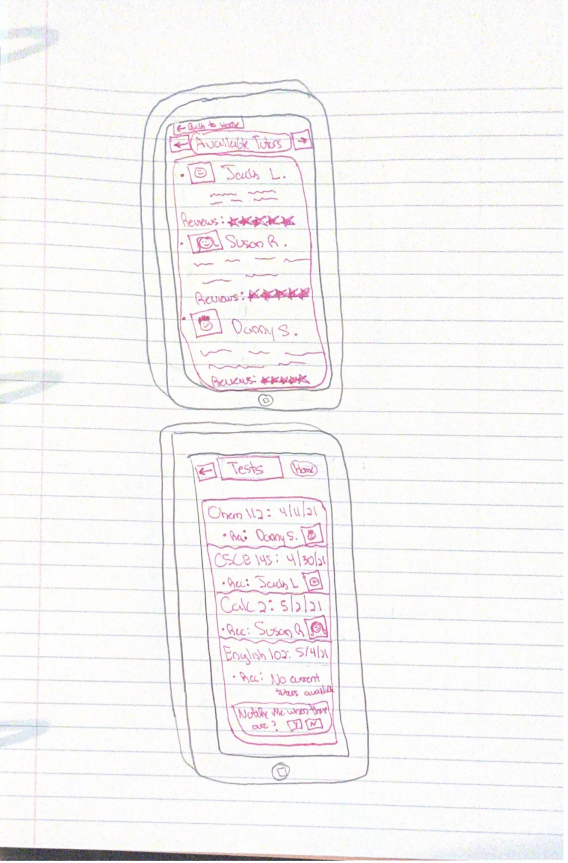 ← Back to Home
← Available Tutors →
• Jacob L.
Reviews: ★★★★★
• Susan R.
Reviews: ★★★★★
• Danny S.
Reviews: ★★★★★
← Tests Home
Chem 112: 4/11/21
• Rec: Danny S.
CSCE 145: 4/30/21
• Rec: Jacob L
Calc 2: 5/2/21
• Rec: Susan R
English 102: 5/4/21
• Rec: No current
tutors available
Notify me when there
are? Y N